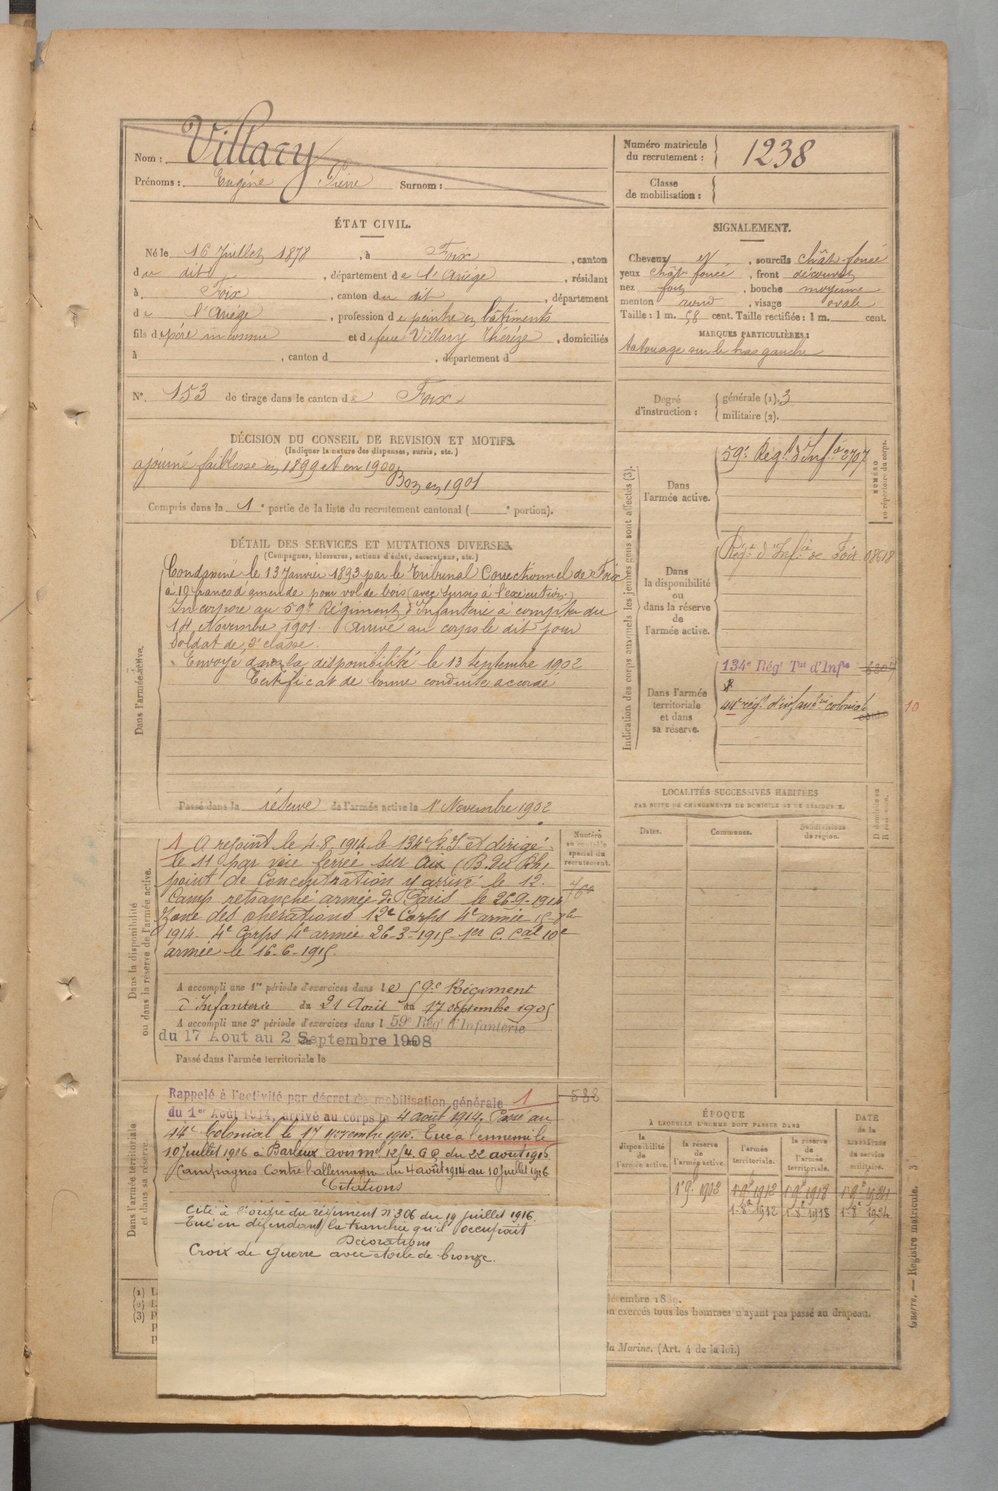 Nom : Villary
Prénoms : Eugène Pierre Surnom :
Numéro matricule du recrutement : 1238
Classe de mobilisation :
ÉTAT CIVIL.
Né le 16 Juillet 1878, à Foix, canton
du dit, département de l'Ariège, résidant
à Foix, canton du dit, département
de l'Ariège, profession de peintre en bâtiments
fils de père inconnu et de feue Villary Thérèze, domiciliés
à , canton d , département d
N° 153 de tirage dans le canton de Foix
SIGNALEMENT.
Cheveux et, sourcils chât-foncé
yeux chât foncé, front découvert
nez fort, bouche moyenne
menton rond, visage ovale
Taille : 1 m. 58 cent. Taille rectifiée : 1 m. cent.
MARQUES PARTICULIÈRES :
tatouage sur le bras gauche
Degré d'instruction : générale (1). 3
militaire (2).
DÉCISION DU CONSEIL DE REVISION ET MOTIFS.
(Indiquer la nature des dispenses, sursis, etc.)
ajourné faiblesse en 1899 et en 1900,
Bon en 1901
Compris dans la 1e partie de la liste du recrutement cantonal ( e portion).
DÉTAIL DES SERVICES ET MUTATIONS DIVERSES.
(Campagnes, blessures, actions d'éclat, décorations, etc.)
Dans l'armée active.
Condamné le 13 Janvier 1893 par le Tribunal Correctionnel de Foix
à 10 francs d'amende pour vol de bois (avec sursis à l'exécution)
Incorporé au 59e Régiment d'Infanterie à compter du
14 Novembre 1901. Arrivé au corps le dit jour
Soldat de 2e classe.
Envoyé dans la disponibilité le 13 Septembre 1902
Certificat de bonne conduite accordé
Passé dans la réserve de l'armée active le 1er Novembre 1902
Dans la disponibilité ou dans la réserve de l'armée active.
Numéro au contrôle spécial du recrutement.
1 A rejoint le 4.8.1914 le 134e R.I et dirigé
le 11 par voie ferrée sur Aix (B. du Rh)
point de Concentration y arrivé le 12.
Camp retranché armée de Paris le 26-9-1914
Zone des opérations 12e Corps 4e armée
1914. 4e Corps 4e armée 26-3-1915 1er C. Cal 10e
armée le 16.6-1915.
A accompli une 1re période d'exercices dans le 59e Régiment
d'Infanterie du 21 Août au 17 septembre 1905
A accompli une 2e période d'exercices dans l 59e Rég' d'Infanterie
du 17 Aout au 2 Septembre 1908
Passé dans l'armée territoriale le
Dans l'armée territoriale et dans sa réserve.
Rappelé à l'activité par décret de mobilisation générale 1
du 1er Août 1914, arrivé au corps le 4 août 1914. Passé au
44e Colonial le 17 novembre 1914. Tué à l'ennemi le
10 juillet 1916 à Barleux avis me 12/4 G Q du 22 août 1916
Campagnes Contre l'allemagne du 4 août 1914 au 10 juillet 1916
Citations
Cité à l'ordre du régiment N° 306 du 19 juillet 1916
Tué en défendant la tranchée qu'il occupait
Décorations
Croix de guerre avec étoile de bronze.
588
Indication des corps auxquels les jeunes gens sont affectés (3).
NUMÉRO au répertoire du corps.
Dans l'armée active.
59e Régt d'Infie 2707
Dans la disponibilité ou dans la réserve de l'armée active.
Régt d'Infie de Foix 08618
Dans l'armée territoriale et dans sa réserve.
134e Rég' Tal d'Infie
44e régt d'infanterie colonial
10
LOCALITÉS SUCCESSIVES HABITÉES
PAR SUITE DE CHANGEMENTS DE DOMICILE OU DE RÉSIDENCE.
Dates. Communes. Subdivisions de région.
ÉPOQUE
À LAQUELLE L'HOMME DOIT PASSER DANS
la disponibilité de l'armée active. la réserve de l'armée active. l'armée territoriale. la réserve de l'armée territoriale.
DATE de la LIBÉRATION du service militaire.
décembre 1889.
on exercés tous les hommes n'ayant pas passé au drapeau.
la Marine. (Art. 4 de la loi.)
Guerre. — Registre matricule.